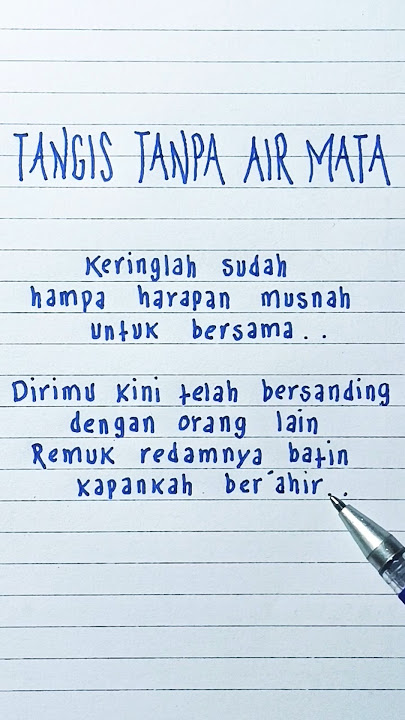 TANGIS TANPA AIR MATA
Keringlah sudah
hampa harapan musnah
untuk bersama..
Dirimu kini telah bersanding
dengan orang lain
Remuk redamnya batin
kapankah ber'ahir..